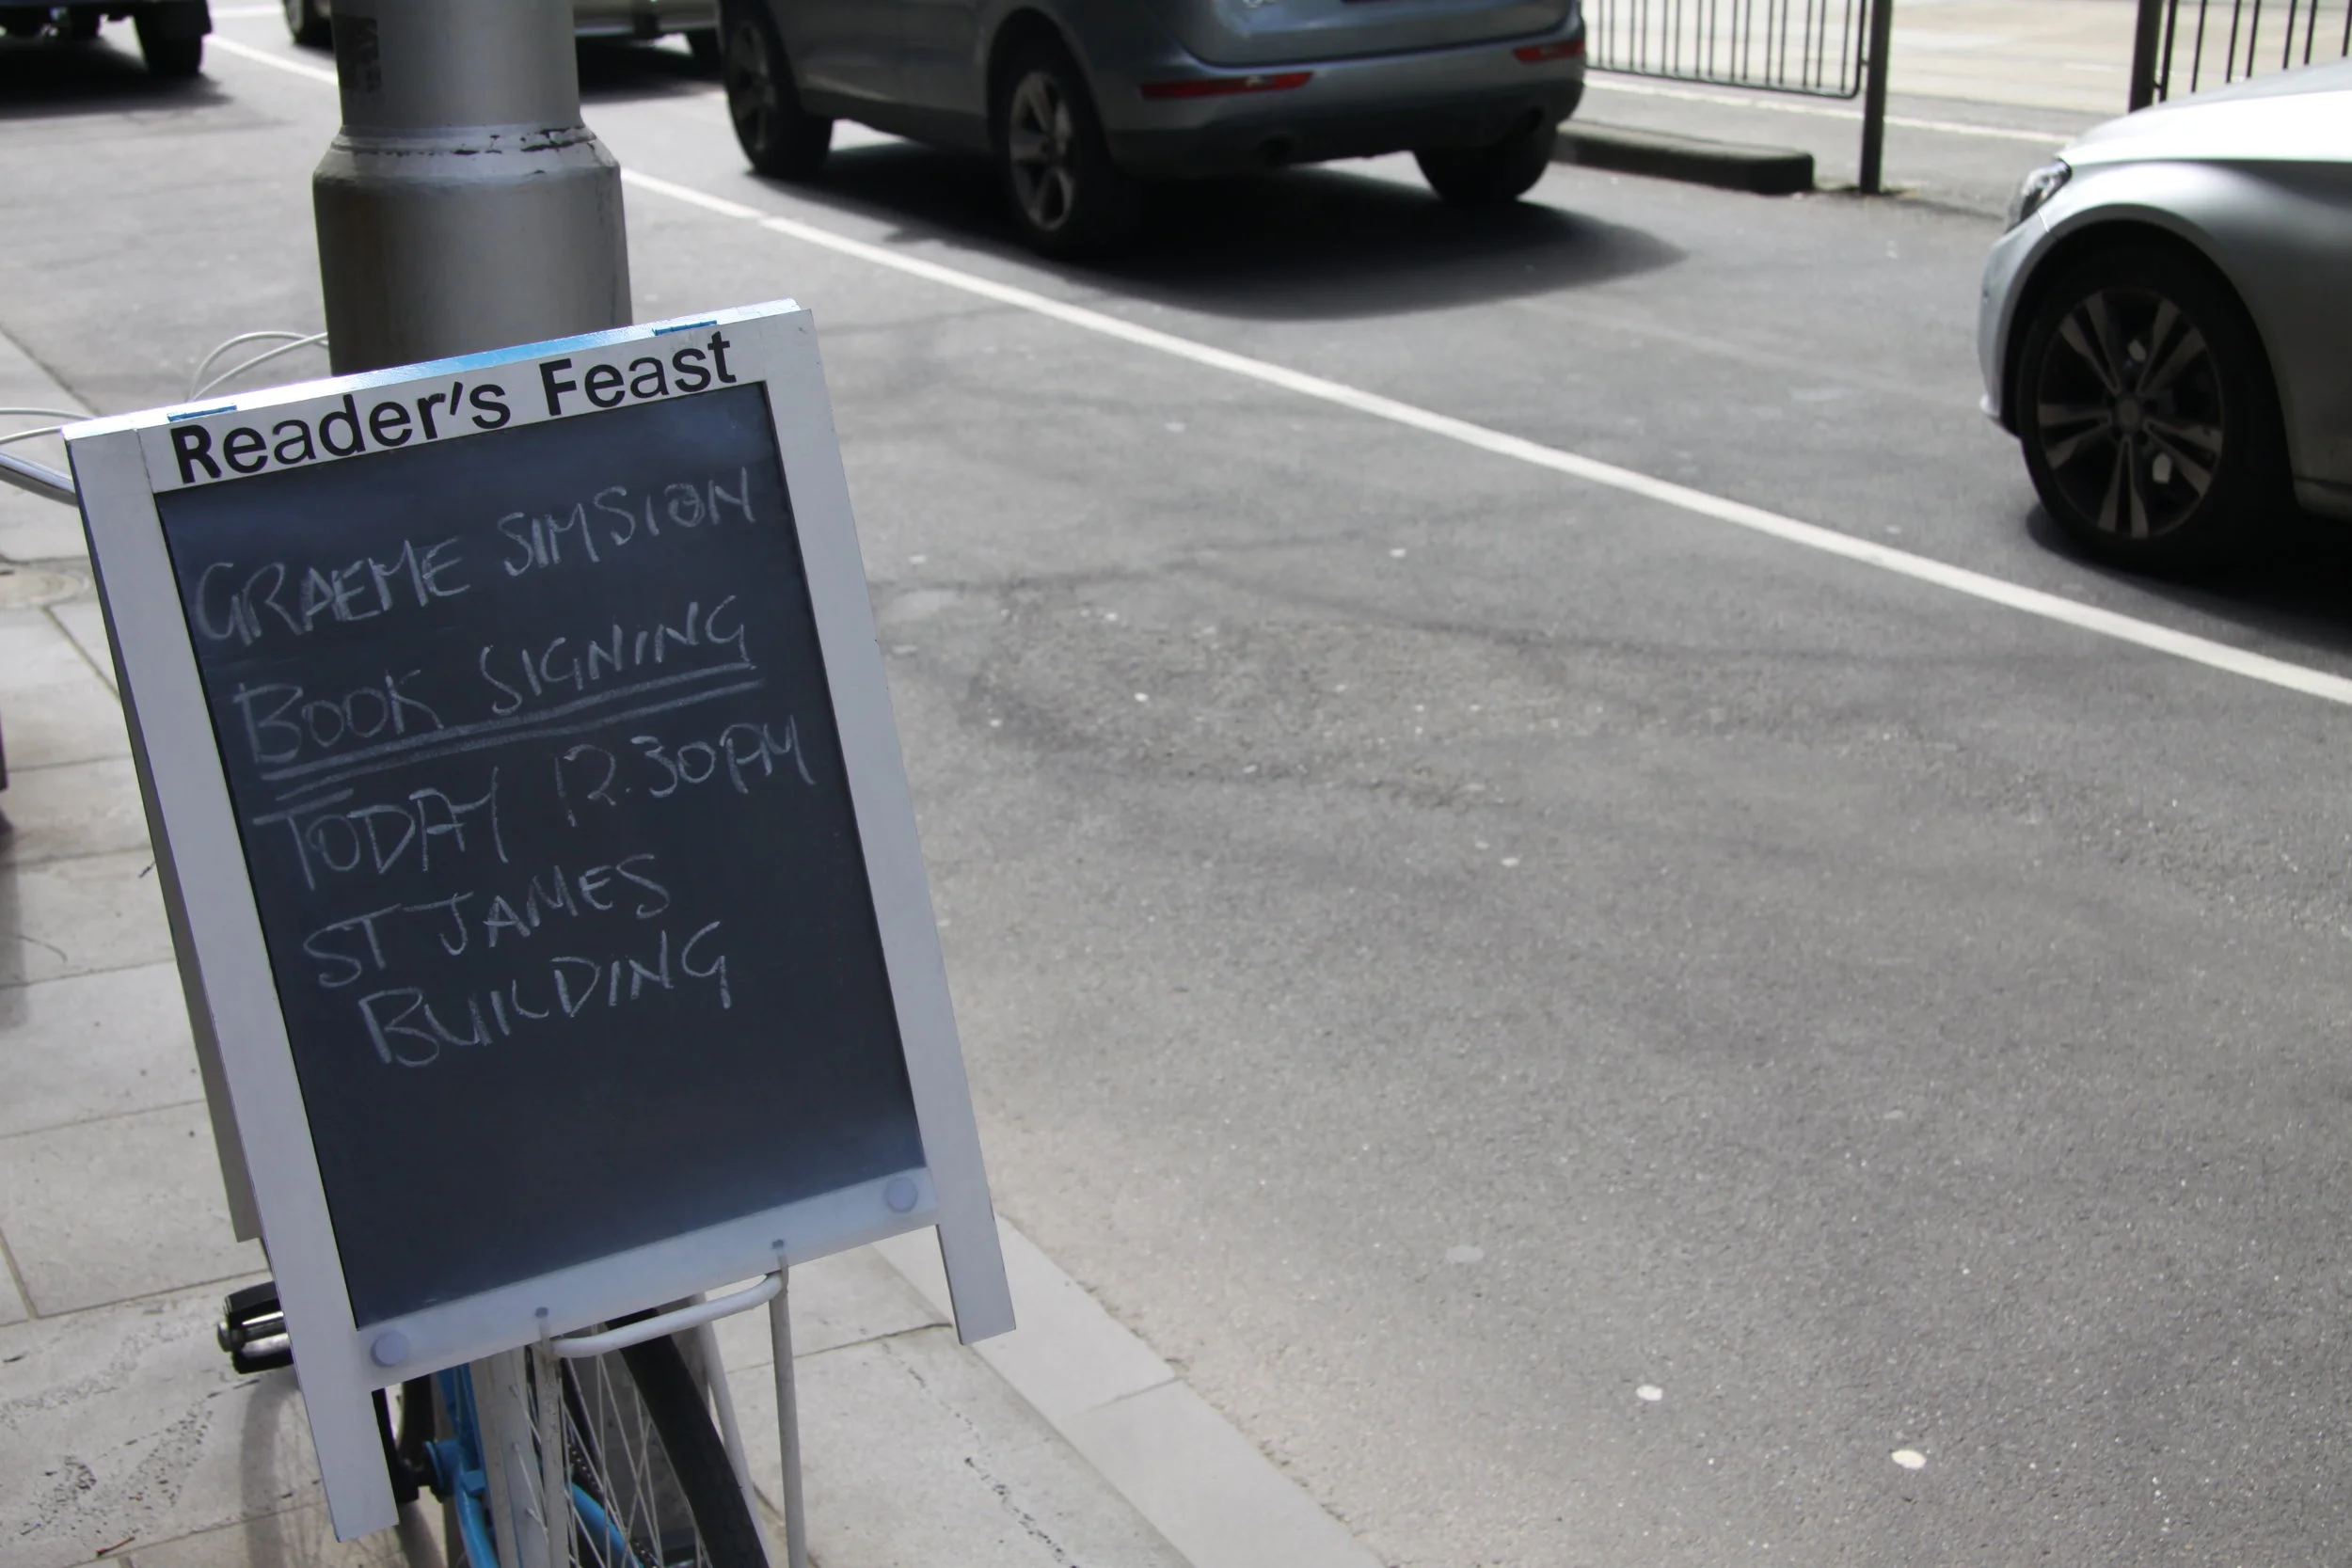 Reader's Feast
GRAEME SIMSION
BOOK SIGNING
TODAY 12.30PM
ST JAMES
BUILDING